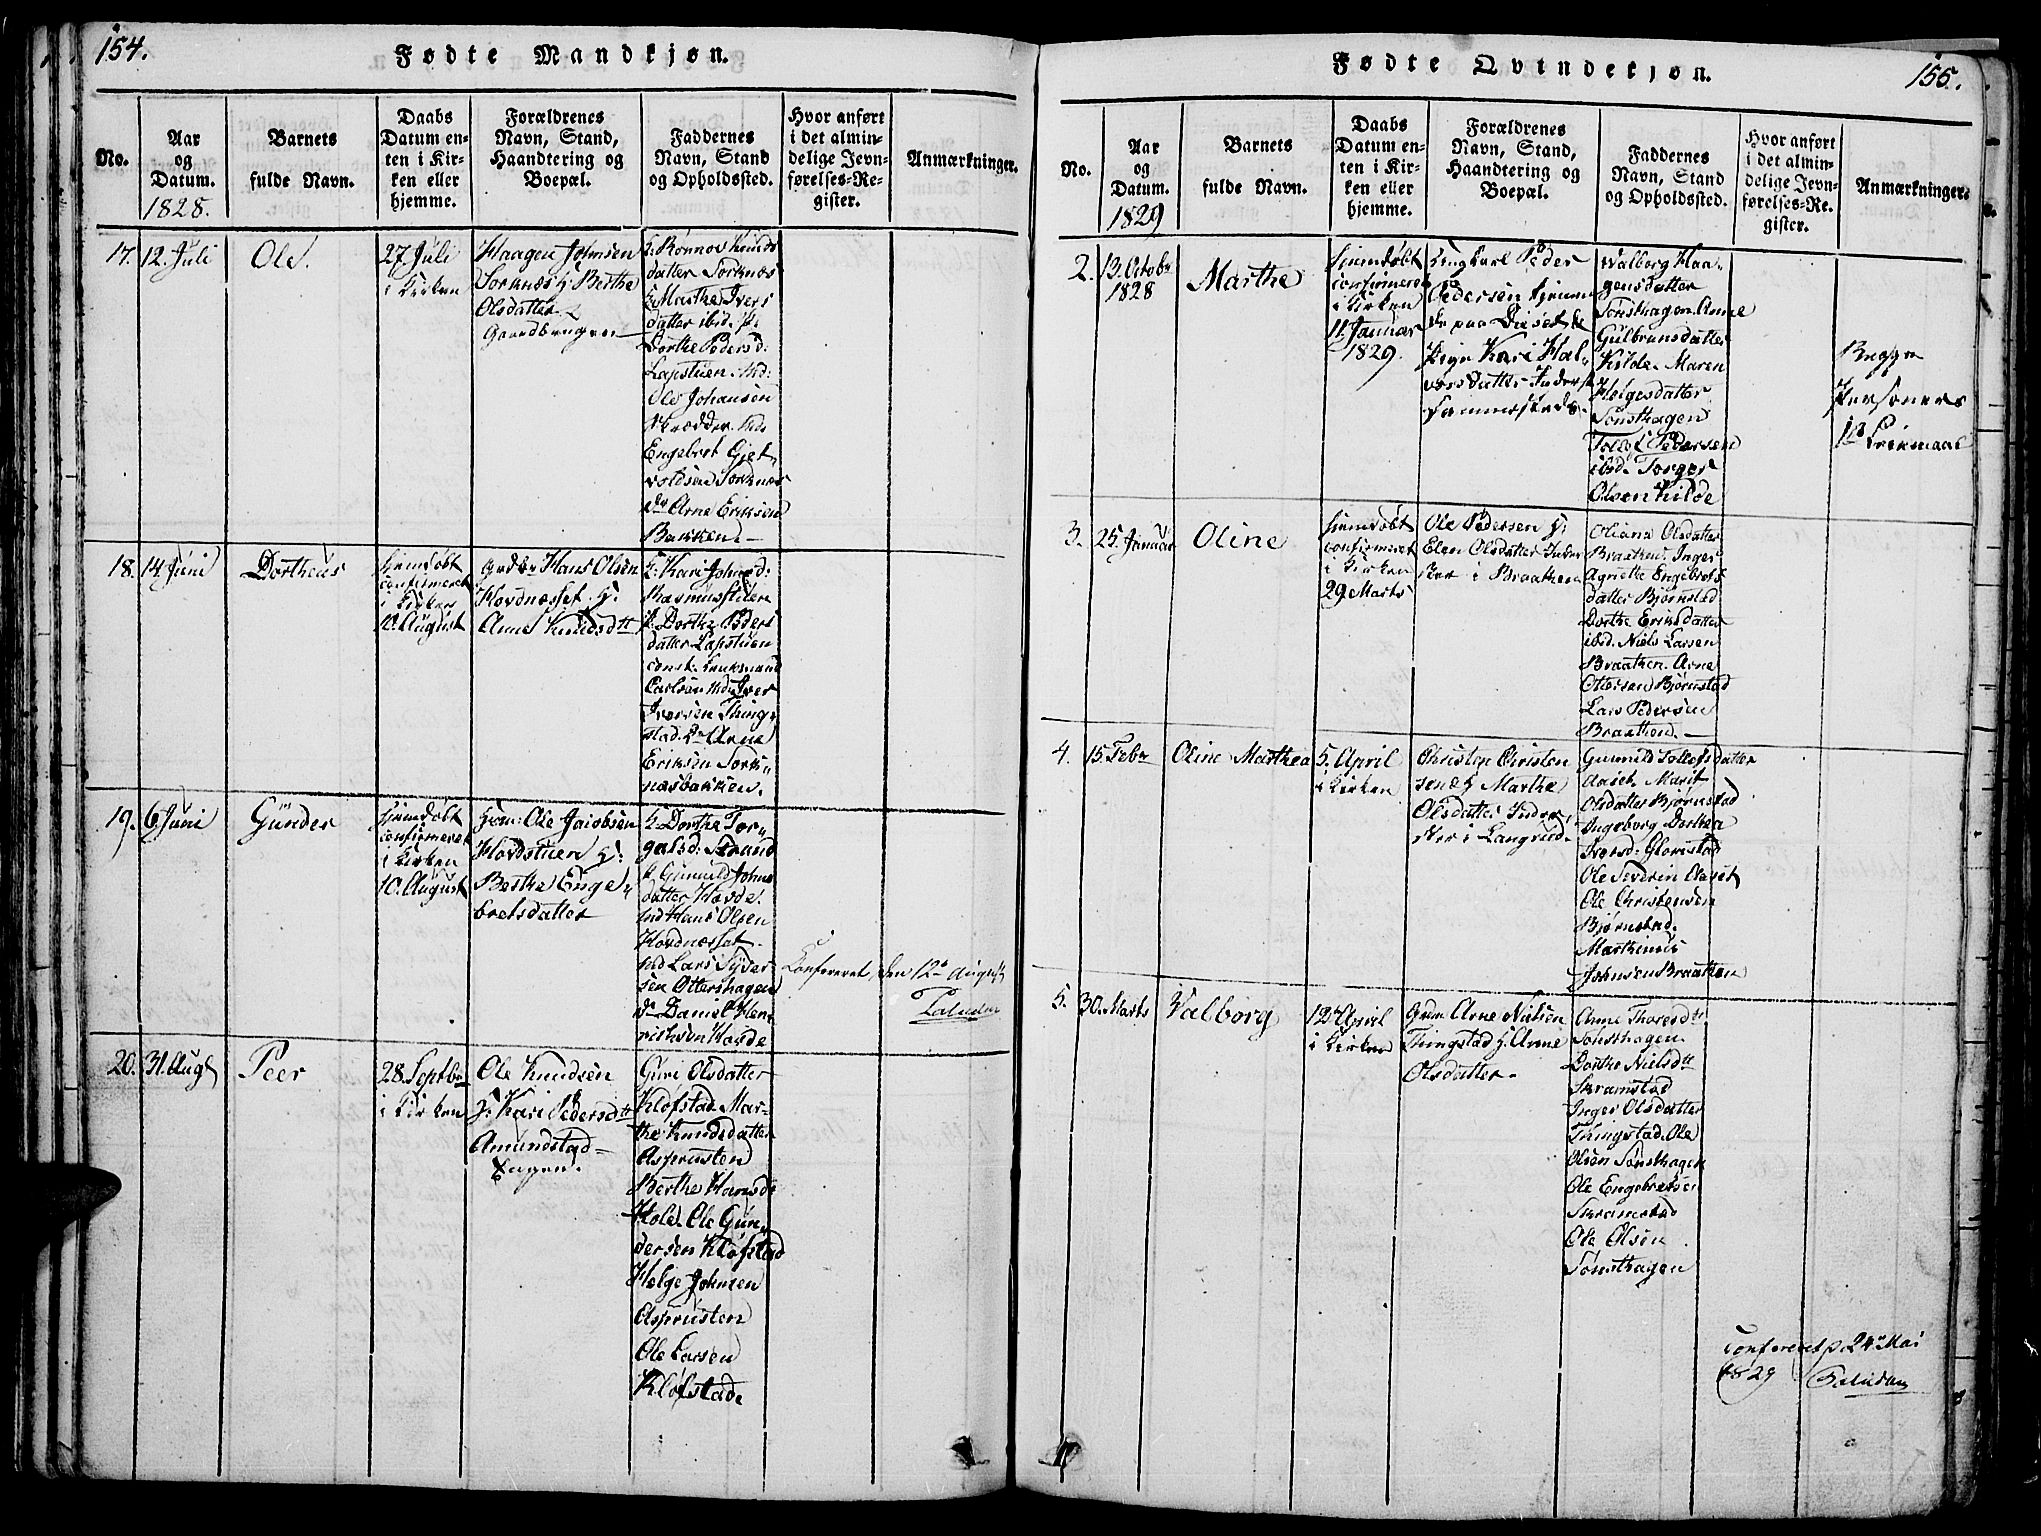 154.
Fødte Mandkjøn.
No.
Aar
og
Datum.
1828.
Barnets
fulde Navn.
Daabs
Datum en-
ten i Kir-
ken eller
hjemme.
Forældrenes
Navn, Stand,
Haandtering og
Boepæl.
Faddernes
Navn, Stand
og Opholdssted.
Hvor anført
i det almin-
delige Jevn-
førelses-Re-
gister.
Anmærkninger.
17.
12. Juli
Ole.
27. Juli
i Kirken
Haagen Johnsen
Sorknæs h: Berthe
Olsdatter
Gaardbruger
datter Sorknæs
Marthe Ivers
datter ibid.
Dorthe Peders d:
Lapstuen.
Ole Johansen
Skrædder
Engebret Gjet
voldsen Sorknæs
Arne Eriksen
Bakken.
18.
14. Juni
Dortheus
hjemdøbt
confirmeret
i Kirken
10. August
Hans Olsen
Hovdnæsset h:
Anne Knudsdtt
Kari Johns d:
Rasmusstuen
Dorthe Peders
datter Lapstuen
Carlsen
Iversen Thing
stad. Arne
Eriksen Sork
næsbakken.
19.
6. Juni
Günder
hjemdøbt
confirmeret
i Kirken
10. August
Ole Jacobsen
Hovdstuen h:
Berthe Enge
bretsdatter
Dorthe Tor
galsd: Strand
Gunnild Johns
datter Hovde.
Hans Olsen
Hovdnæsset
Lars Syver
sen Ottershagen
Daniel Hen
riksen Hovde
Confereret, den 12te August
Paludan
20.
31. Aug
Peer
28. Septbr
i Kirken
Ole Knudsen
h: Kari Pedersdtt
Amundstad
hagen.
Guri Olsdatter
Kløfstad. Mar-
the Knudsdatter
Asprusten
Berthe Hansd:
Hole. Ole Gün
dersen Kløfstad
Helge Johnsen
Asprusten
Ole Larsen
Kløfstad
155.
Fødte Qvindekjøn.
No.
Aar
og
Datum.
1829
Barnets
fulde Navn.
Daabs
Datum en-
ten i Kir-
ken eller
hjemme.
Forældrenes
Navn, Stand,
Haandtering og
Boepæl.
Faddernes
Navn, Stand
og Opholdssted.
Hvor anført
i det almin-
delige Jevn-
førelses-Re-
gister.
Anmærkninger.
2.
13. Octobr
1828
Marthe
hjemdøbt
confirmeret
i Kirken
11. Januar
1829.
Ungkarl Peder
Pedersen tjenen
de paa Dieset
Pige Kari Hal
vorsdatter Inderst
sammesteds.
Walborg Haa-
gensdatter
Sønsthagen. Anne
Gulbransdatter
Kilde. Maren
Helgesdatter
Sønsthagen
Pedersen
ibid. Torger
Olsen Kilde
Begge
Personers
1ste Leiermaal
3.
25. Januar
Oline
hjemdøbt
confirmeret
i Kirken
29. Marts
Ole Pedersen h:
Elen Olsdatter Inder
ster i Braathen
Oliana Olsdatter
Braathen. Inger
Agnethe Engebrets
datter Bjørnstad
Dorthe Eriksdatter
ibid. Niels Larsen
Braathen. Arne
Ottersen Bjørnstad
Lars Pedersen
Braathen.
4.
15. Febr
Oline Marthea
5. April
i Kirken
Christen Christen
sen h: Marthe
Olsdatter Inder
ster i Langrud.
Gunnild Tollefsdatter
Aaset. Marit
Olsdatter Bjørnstad
Ingeborg Dorthea
Iversd: Glomstad
Ole Severin Aaset
Ole Christensen
Bjørnstad.
Marthinus
Johnsen Braathen
5.
30. Marts
Valborg
12te April
i Kirken
Arne Nielsen
Thingstad h: Anne
Olsdatter.
Anne Thoresdtt
Sønsthagen
Dorthe Nielsdtt
Skramstad
Inger Olsdatter
Thingstad. Ole
Olsen Sønsthagen
Ole Engebretsen
Skramstad
Ole Olsen
Sønsthagen
Confereret p. 24de Mai
1829 Paludan